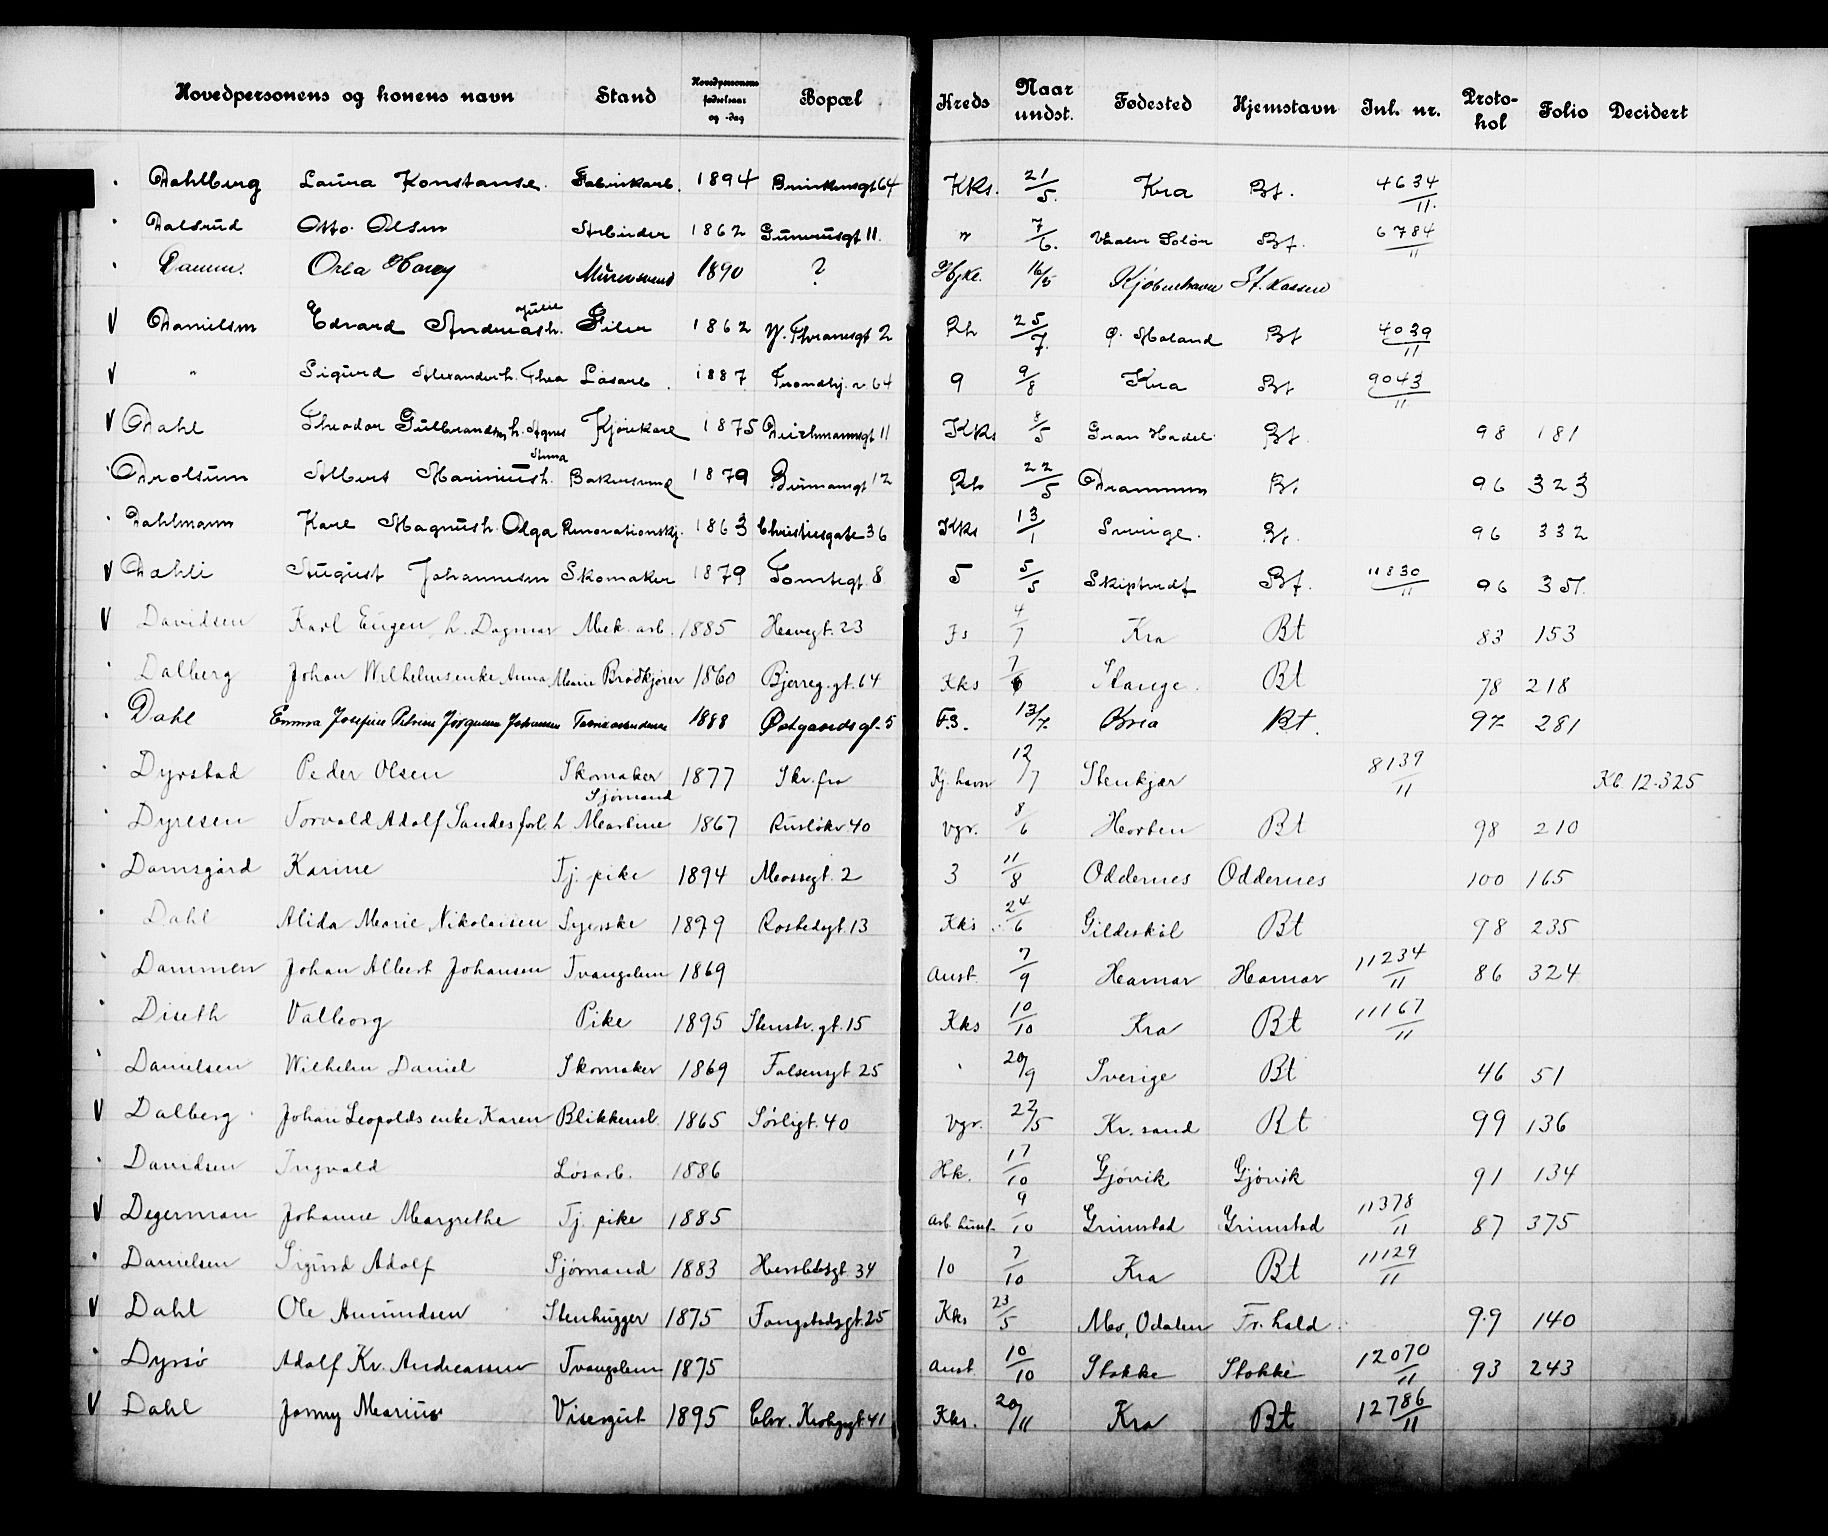 Hovedpersonens og konens navn Stand Hovedpersonens fødselsaar og -dag Bopæl Kreds Naar undst. Fødested Hjemstavn Inl. nr. Protokol Folio Decidert
Dahlberg Laura Konstanse. Fabrikarb. 1894 Brinkensgt 64 Kks. 21/5. Kra Bt. 4634/11.
Dalsrud Otto Olsen Arbeider 1862 Gunerusgt 11. " 7/6. Vaaler Solør Bt. 6784/11
Damm. Orla Harry Murersvend 1890 ? Hjkl. 16/5 Kjøbenhavn St. kassen
V Danielsen Edvard Andreas h. Julie Filer 1862 M. Thranesgt 2 Rh 25/7. Ø. Moland Bt 4039/11
V " Sigurd Alexander h. Thea Løsarb. 1887 Trondhj. v. 64 9 9/8 Kra Bt 9043/11
V Dahl Theodor Gulbrandsen h. Agnes Kjørekarl 1875 Deichmannsgt 11 Kks 8/5 Gran Hadel. Bt. 98 181
Drolsum Albert Marinius h. Anna Bakersvend 1879 Birmansgt 12 Rh 22/5 Drammen Bt 96 323
Dahlmann Karl Magnus h. Olga Renovationskj. 1863 Christiesgate 36 Kks 13/1 Sverige. Bt. 96 332
V Dæhli August Johannesen Skomaker 1879 Tomtegt 8 5 5/5 Skiptvedt Bt. 11830/11 96 351.
V Davidsen Karl Eugen h. Dagmar Mek. arb. 1885 Havegt. 23 Fs 4/7 Kra Bt 83 153
Dalberg Johan Wilhelms enke Anna Marie Brødkjører 1860 Bjerreg. gt. 64 Kks 7/6 Stange. Bt 78 218
Dahl Emma Josefine Petrine Jørgensen Johansen 1888 Østgaards gt. 5 F.3. 13/7. Kria Bt. 97 281
Dyrstad Peder Olsen Skomaker 1877 Skr. fra Kj. havn 12/7 Stenkjær 8139/11 Kb. 12-325
Dyresen Torvald Adolf Sandes forl. h. Martine Sjømand 1867 Rusløkv 40 Vgr. 8/6 Horten Bt 98 210
Damsgård Karine Tj. pike 1894 Mossegt. 2 3 11/8 Oddernes Oddernes 100 165
Dahl Alida Marie Nikolaisen Syerske 1879 Rostedsgt. 13 Kks 24/6 Gildeskål Bt 98 235
Dammen Johan Albert Johansen Tvangslem 1869 Anst. 7/9 Hamar Hamar 11234/11 86 324
Diseth Valborg Pike 1895 Stenstr. gt. 15 Kks 10/10 Kra Bt 11167/11
Danielsen Wilhelm Daniel Skomaker 1869 Falsensgt. 25 " 20/9 Sverige Bt 46 51
V Dalberg Johan Leopolds enke Karen Blikkensl. 1865 Sørligt. 40 Vgr. 22/5 Kr. sand Bt 99 136
Davidsen Ingvald Løsarb. 1886 Hk. 17/10 Gjøvik Gjøvik 91 134
V Degerman Johanne Margrethe Tj. pike 1885 9/10 Grimstad Grimstad 11378/11 87 375
Danielsen Sigurd Adolf Sjømand 1883 Herslebsgt. 34 10 7/10 Kra Bt 11129/11
V Dahl Ole Amundsen Stenhugger 1875 Fougstadsgt. 25 Kks 23/5 Nes, Odalen Fr. hald 99 140
Dyrsø Adolf Kr. Andreassen Tvangslem 1875 Anst 10/10 Stokke Stokke 12070/11 93 243
V Dahl Jonny Marius Visergut 1895 Chr. Krohgsgt. 41 Kks. 20/11 Kra Bt 12786/11